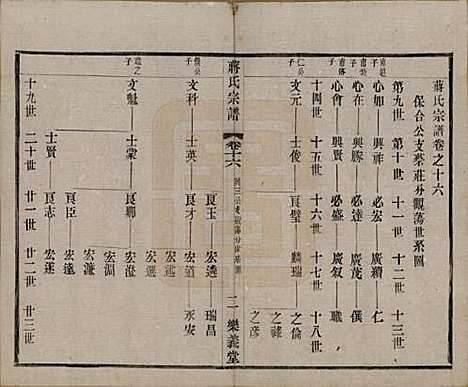 蔣氏宗譜卷之十六
保合公支蔡莊分觀蕩世系圖
第九世 第十世 十一世 十二世 十三世
心如 興祥 必宏 廣續 仁
心在 興勝 必達 廣茂 僕
心會 興賢 必盛 廣叙 職
十四世 十五世 十六世 十七世 十八世
文元 士俊 良璧 麟瑞 之倫
之祿
之彥
蔣氏宗譜
卷十六
二 樂義堂
良玉 宏遶 瑞昌
文科 士英 良才 宏道 永安
宏選
文魁 士蒙 良卿 宏澄
宏淵
宏濂
良臣 宏遠
士賢 良志 宏運
十九世 二十世 廿一世 廿二世 廿三世